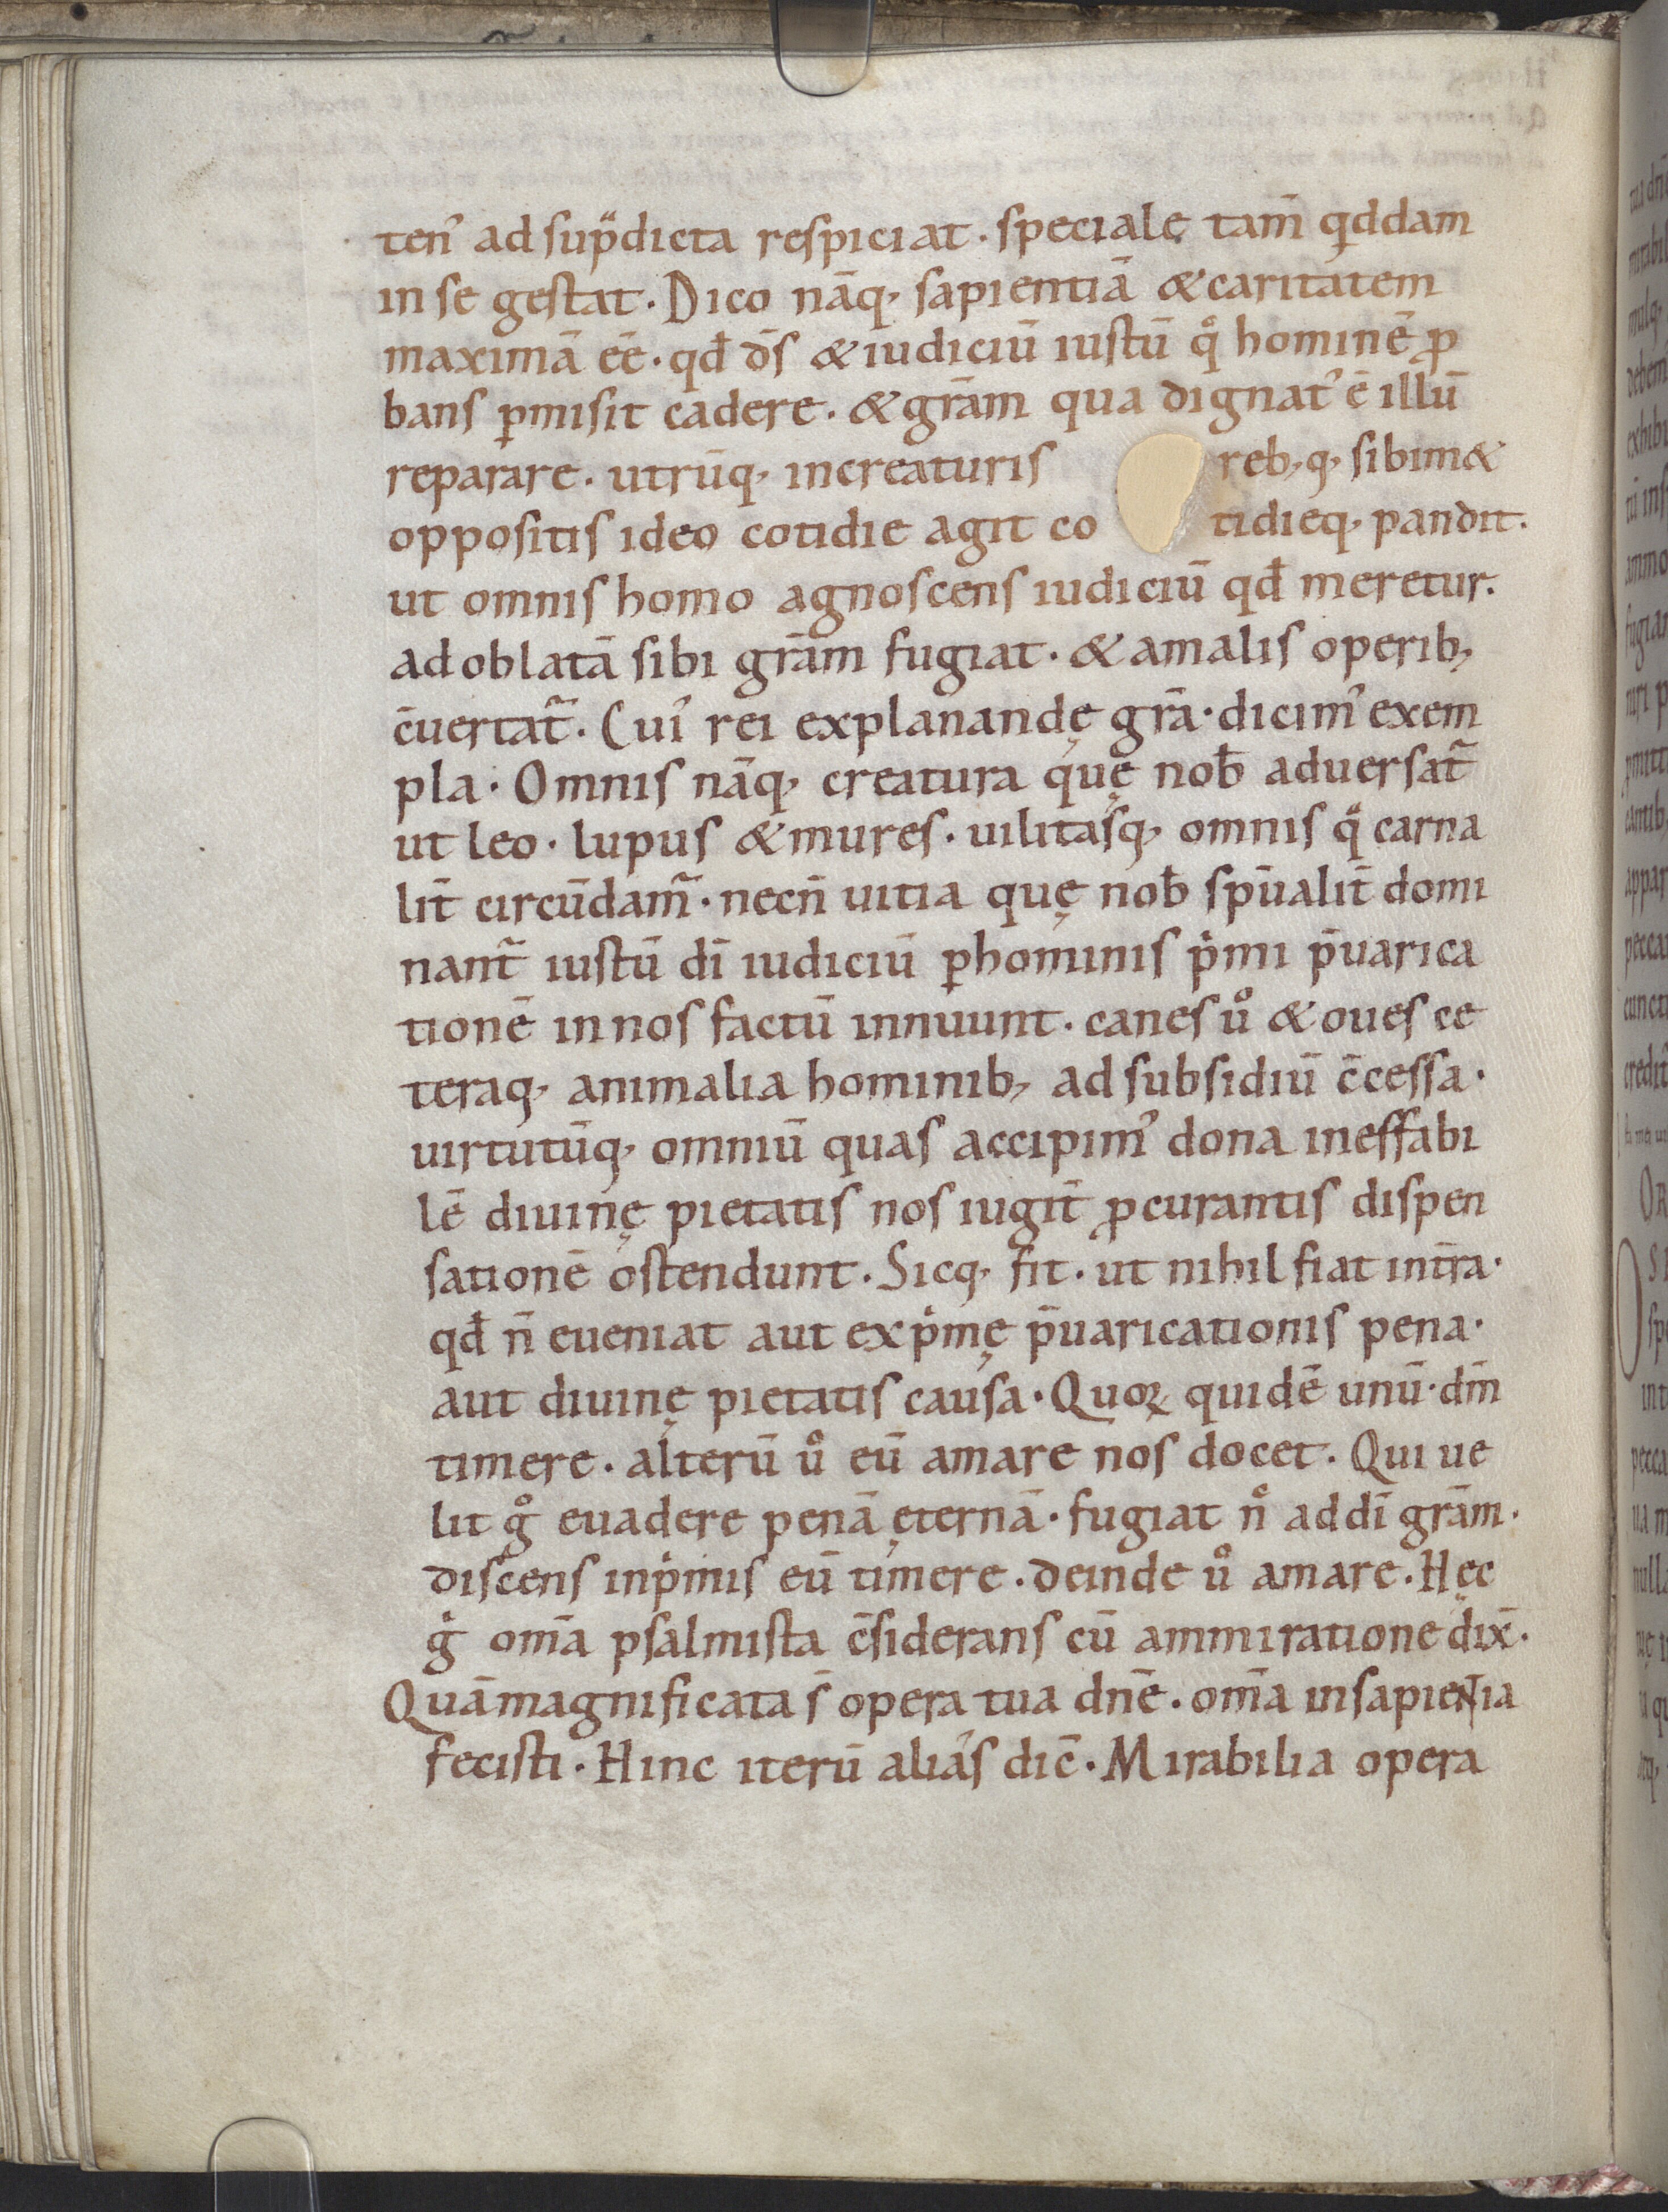 ten᾿ ad sup̈dicta respiciat. specialę tam̄ qͥddam
in se gestat. Dico nāq, sapientiā & caritatem
maximā eē. qđ d̄s & iudiciū iustū qͦ hominē ꝓ
bans ꝑmisit cadere. & grām qua dignat᾿ ē illū
reparare. utrūq, in creaturis reb,q, sibim&
oppositis ideo cotidie agit co tidieq, pandit.
ut omnis homo agnoscens iudiciū qđ meretur.
ad oblatā sibi grām fugiat. & a malis operib,
c̄uertat̃. Cui᾿ rei explanandę grā. dicim᾿ exem
pla. Omnis nāq, creatura quę nob̄ aduersat̃
ut leo. lupus & mures. uilitasq, omnis qͣ carna
lit̄ circūdam̃. necn̄ uitia quę nob̄ sp̄ualit̄ domi
nant̃ iustū dī iudiciū ꝑ hominis pͥmi p̄uarica
tionē in nos factū innuunt. canes uͦ & oues ce
teraq, animalia hominib, ad subsidiū c̄cessa.
uirtutūq, omniū quas accipim᾿ dona ineffabi
lē diuinę pietatis nos iugit̄ ꝓcurantis dispen
sationē ostendunt. Sicq, fit. ut nihil fiat int̄ra.
qđ n̄ eueniat aut ex pͥmę p̄uaricationis pena.
aut diuinę pietatis causa. Quoꝝ quidē unū. dm̄
timere. alterū uͦ eū amare nos docet. Qui ue
lit gͦ euadere penā ęternā. fugiat nͨ ad dī grām.
discens inpͥmis eū timere. deinde uͦ amare. Hęc
gͦ om̄a psalmista c̄siderans cū ammiratione dix̄.
Quā magnificata s̄ opera tua dn̄e. om̄a in sapientia
fecisti. Hinc iterū alias dic̄. Mirabilia opera